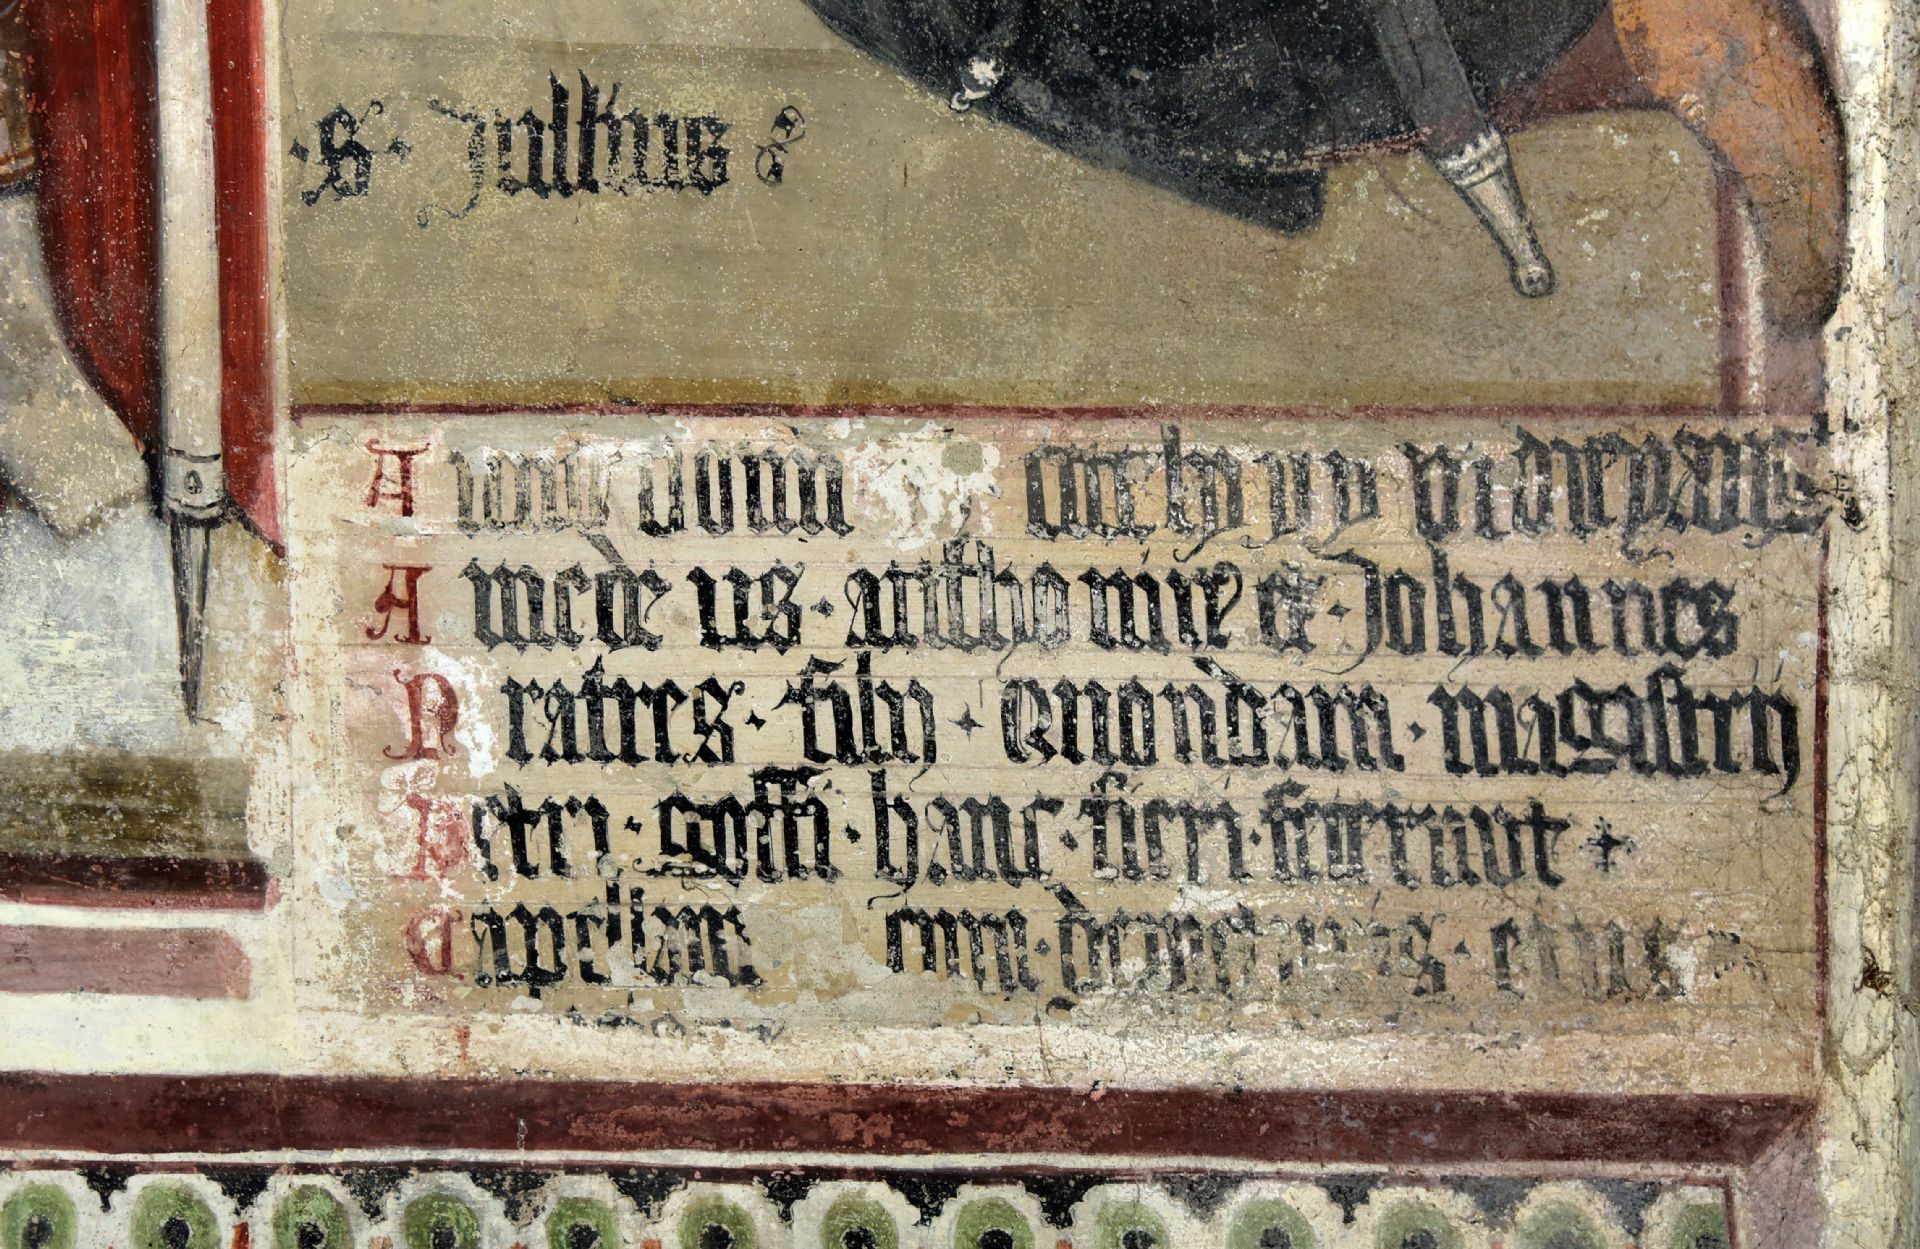 ·S· Jullius
Anno domini cccc lxxxx vi die
Amedeus · anthonius et · Johannes
ratres · filij · Quondam · magistrij
Petri · goffi · hanc · fieri · fecerunt
Capellam cum eius